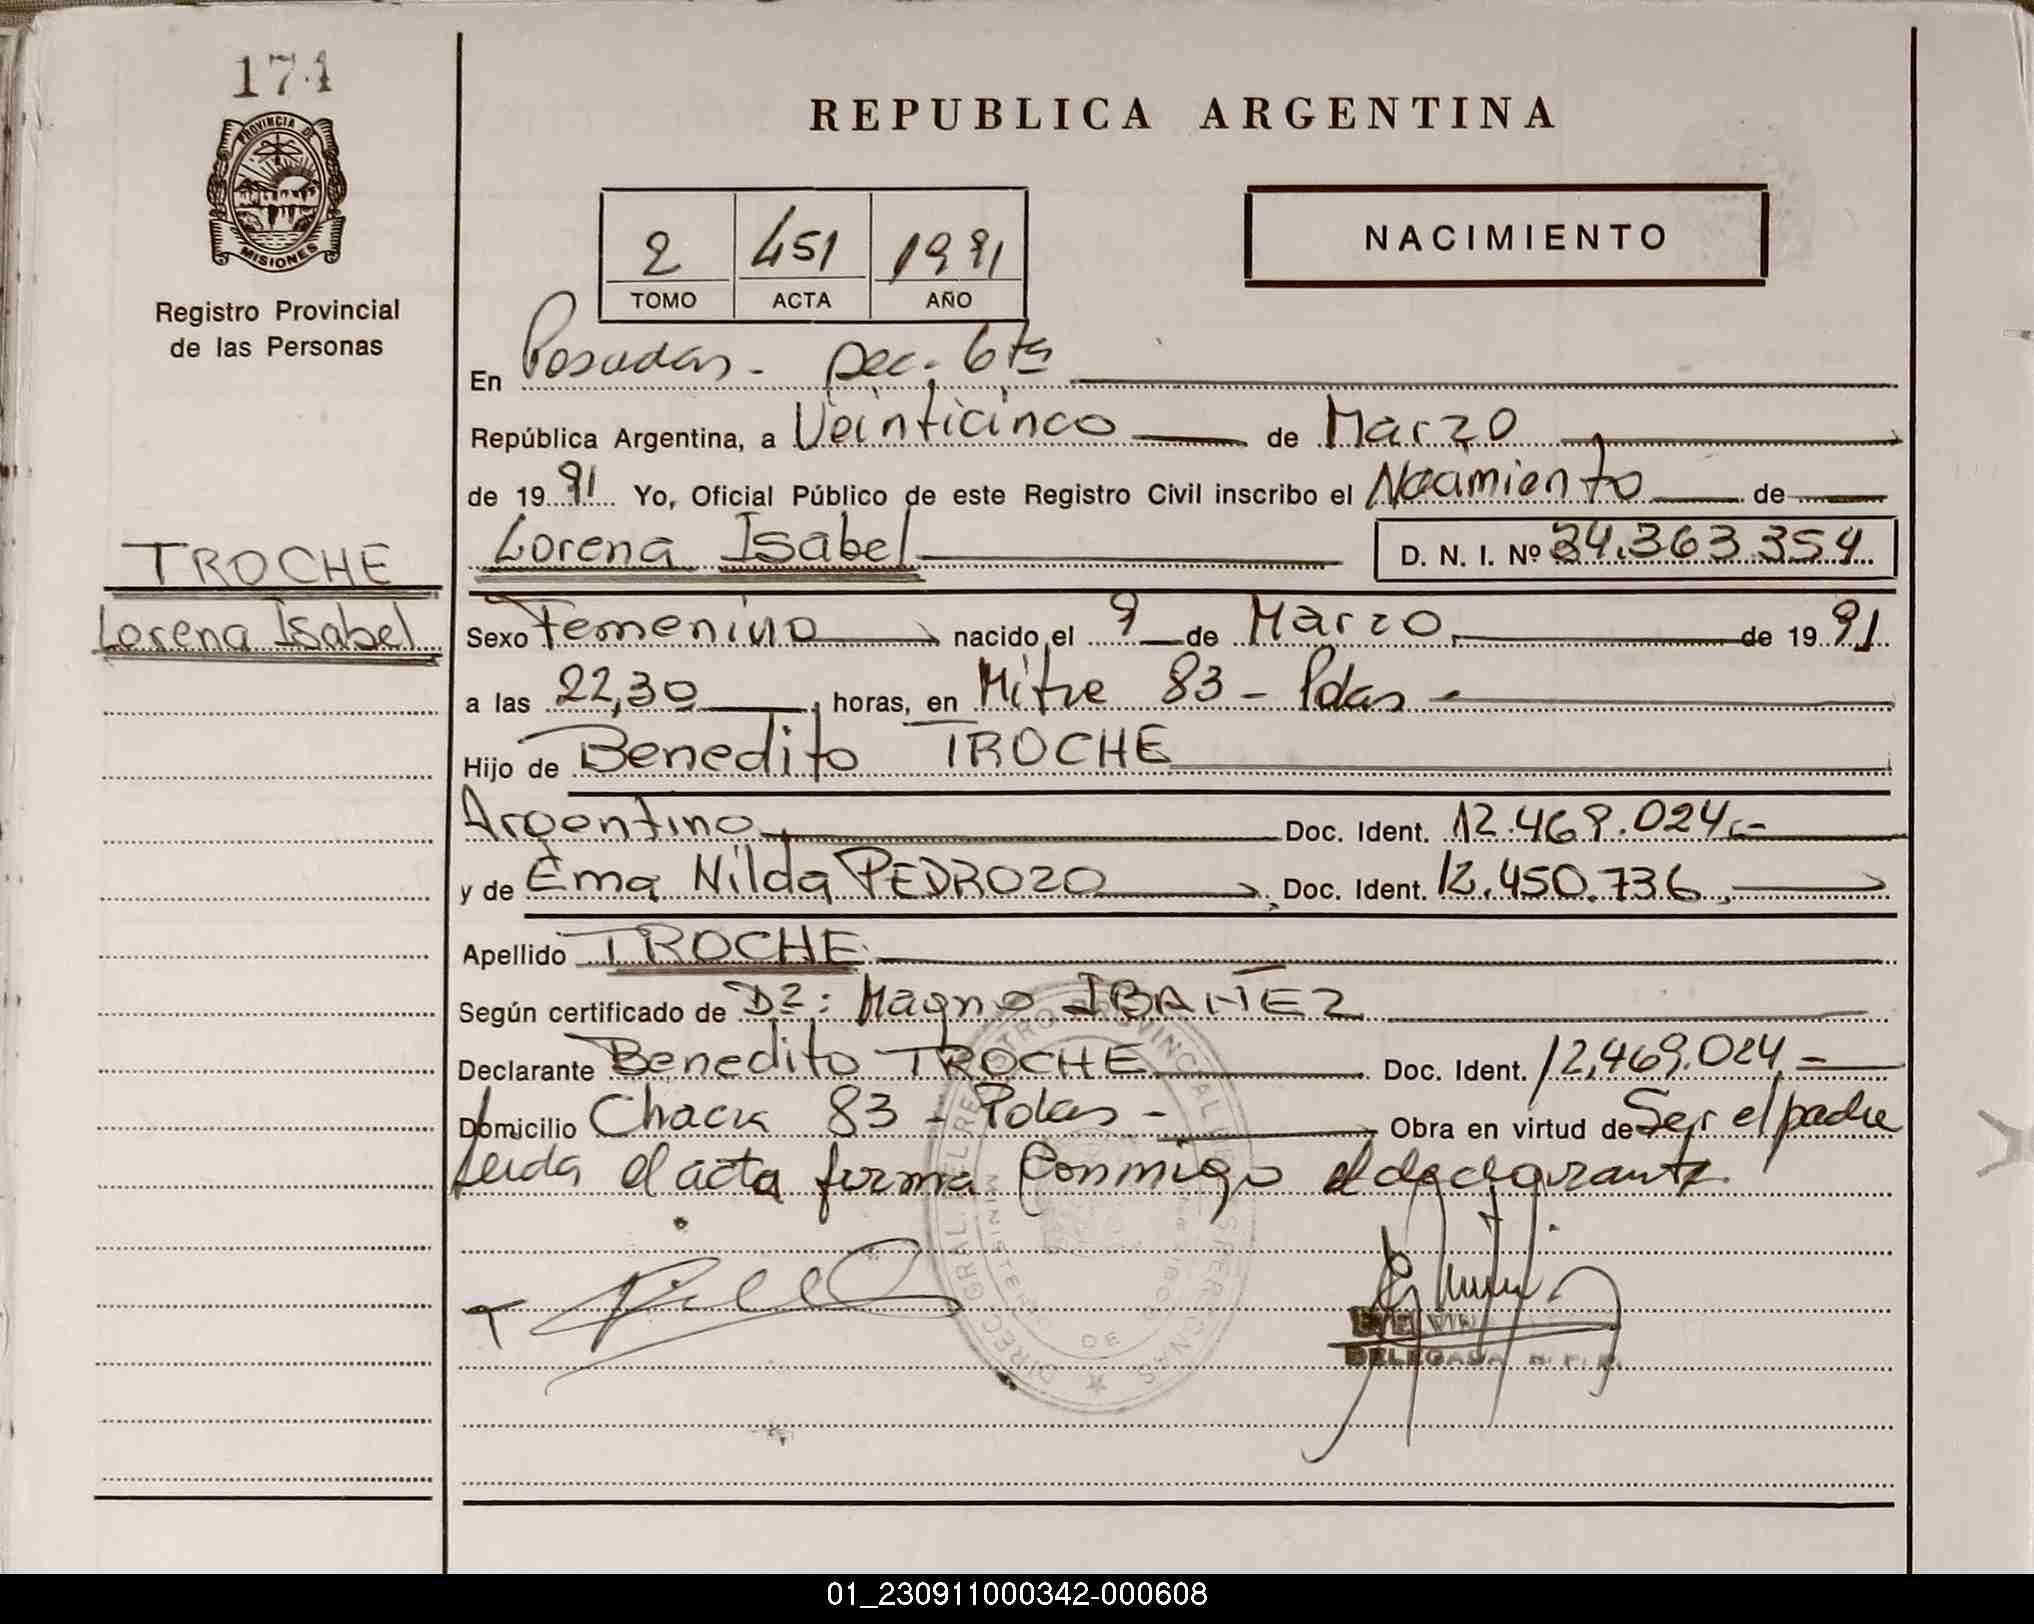 174
PROVINCIA DE
MISIONES
Registro Provincial
de las Personas
TROCHE
Lorena Isabel
REPUBLICA ARGENTINA
2 451 1991
TOMO ACTA AÑO
NACIMIENTO
En Posadas - Sec. 6ta
República Argentina, a Veinticinco de Marzo
de 1991 Yo, Oficial Público de este Registro Civil inscribo el Nacimiento de
Lorena Isabel D. N. I. Nº 34.363.354
Sexo Femenino nacido el 9 de Marzo de 1991
a las 22,30 horas, en Mitre 83 - Pdas -
Hijo de Benedito TROCHE
Argentino Doc. Ident. 12.469.024.-
y de Ema Nilda PEDROZO Doc. Ident. 12.450.736
Apellido TROCHE
Según certificado de Dr: Magno IBAÑEZ
Declarante Benedito TROCHE Doc. Ident. 12,469.024 =
Domicilio Chacra 83 - Pdas - Obra en virtud de Ser el padre
Leida el acta firma conmigo el declarante.
DIREC. GRAL. DEL REGISTRO PROVINCIAL DE LAS PERSONAS
MINISTERIO DE
DELEGADA R. P. P.
01_230911000342-000608